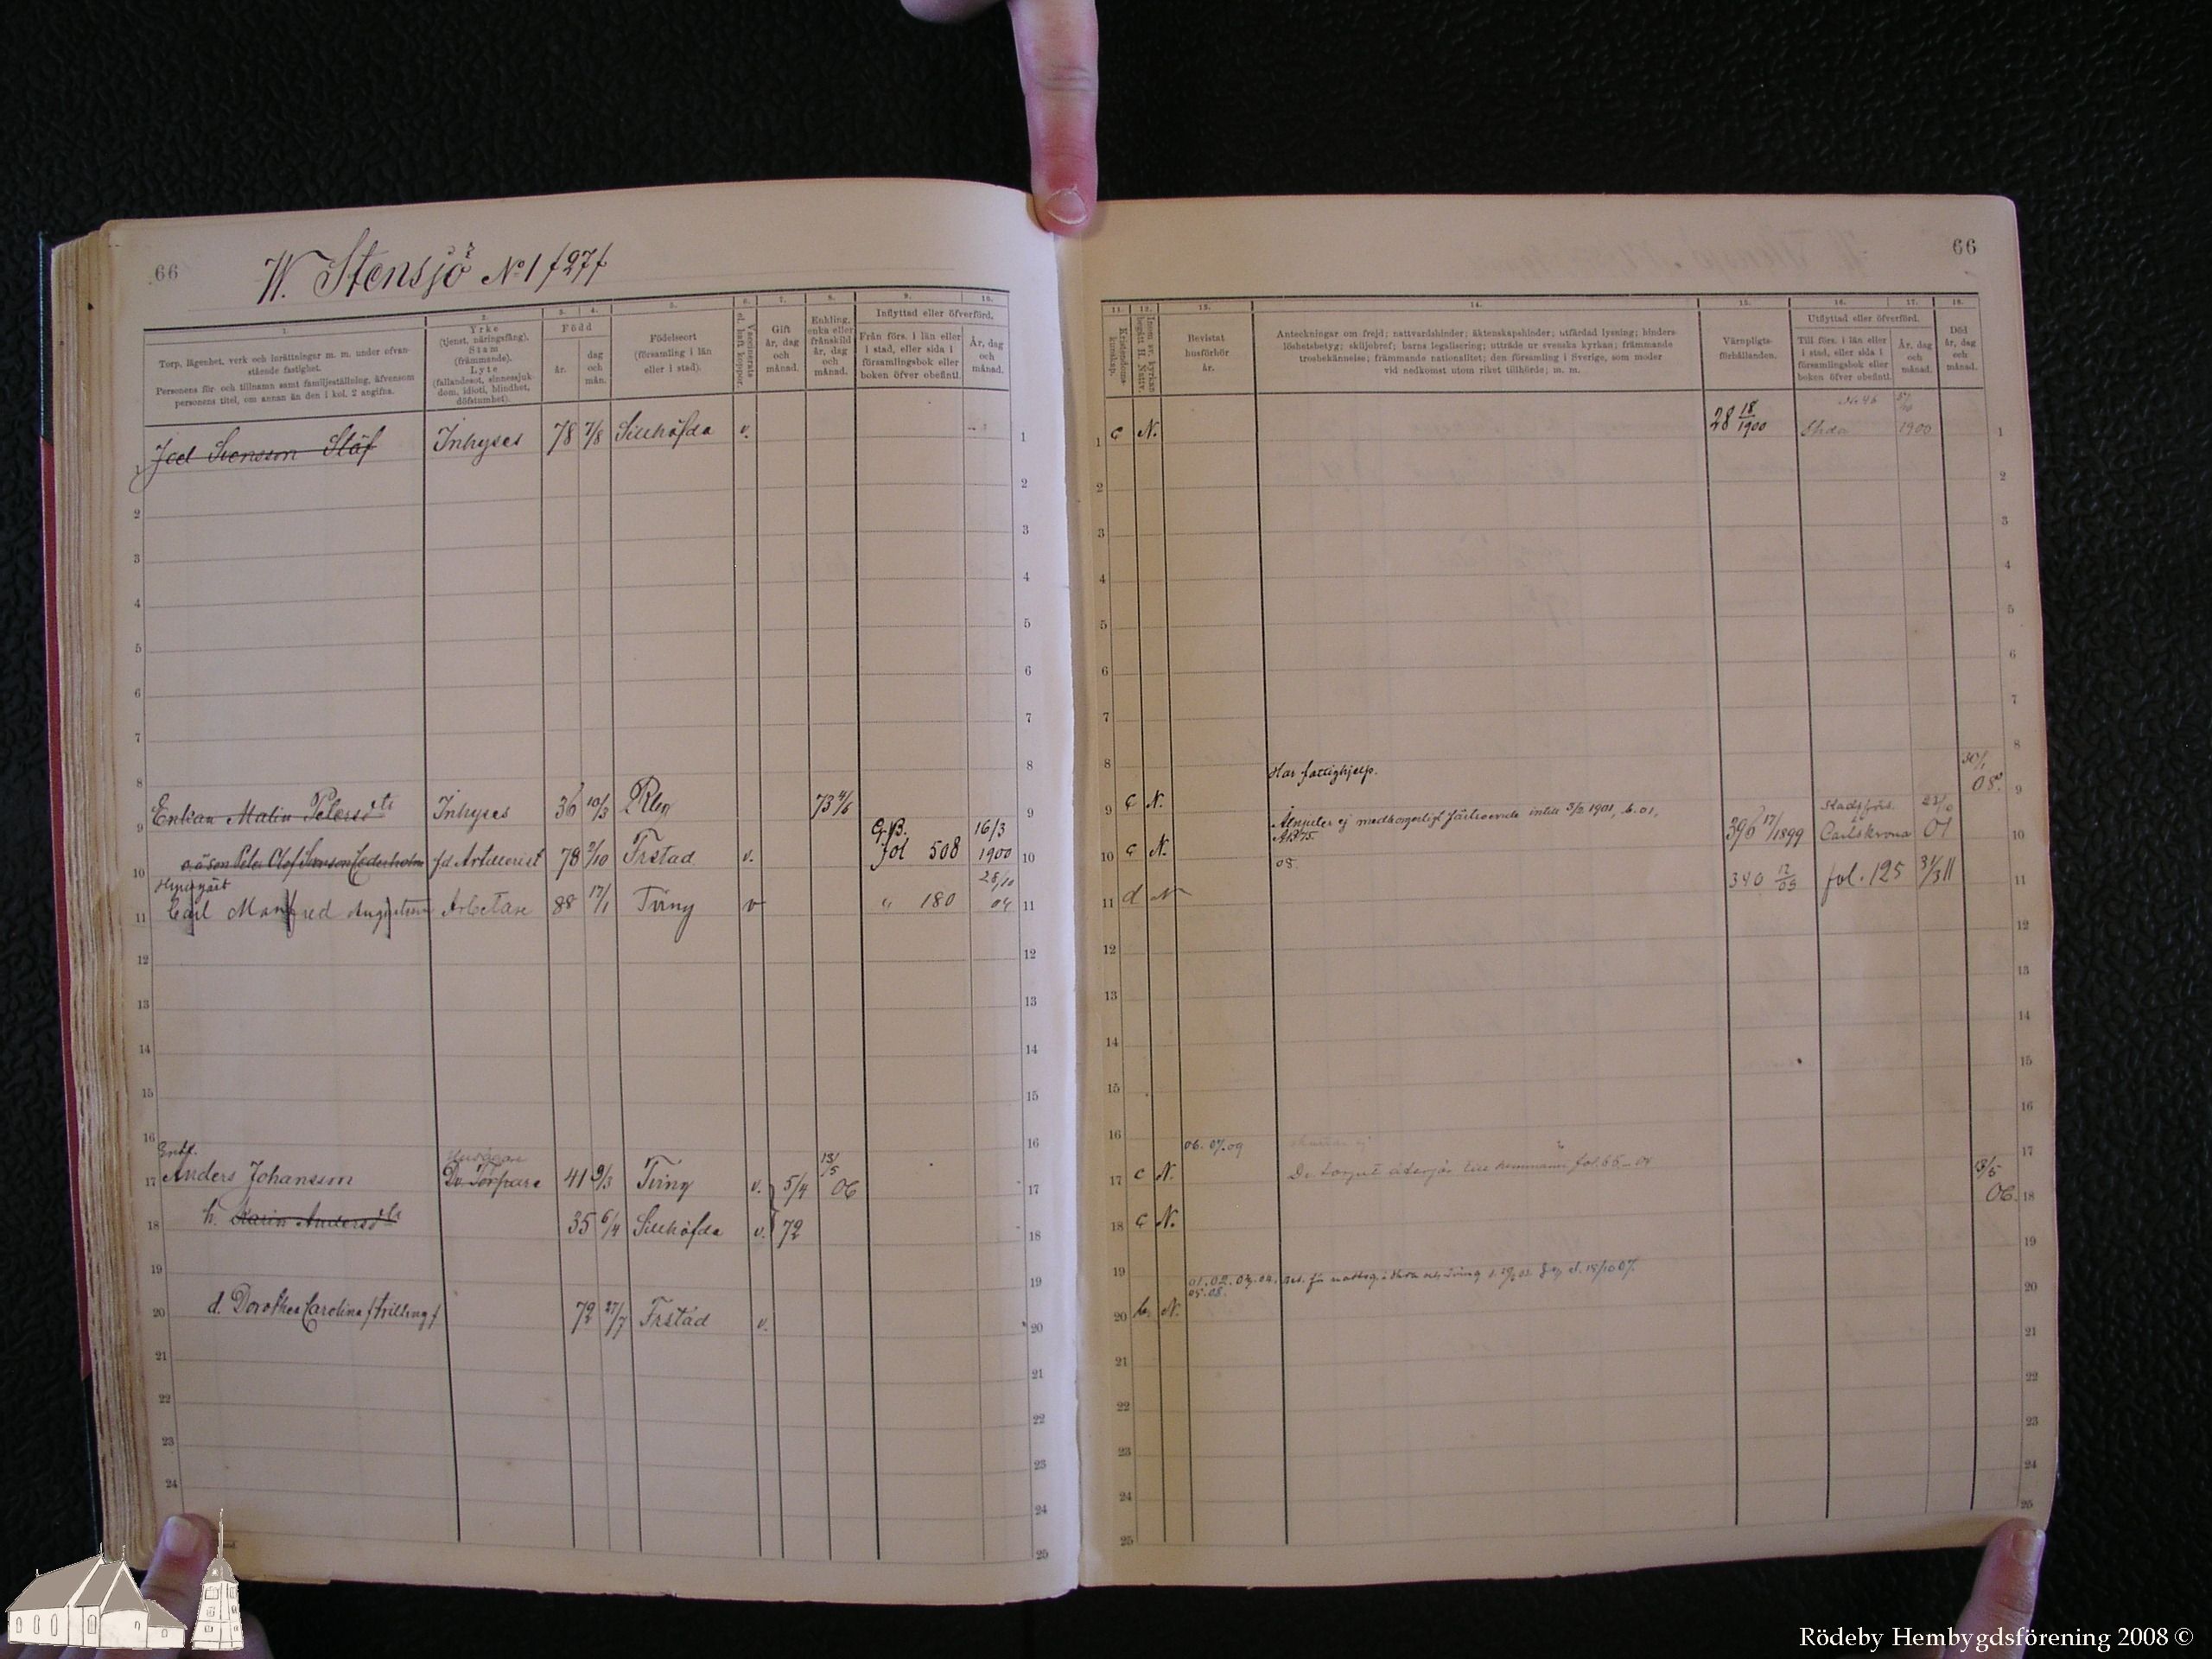 66
W. Stensjö No 1 f 27 f
1.
Torp, lägenhet, verk och inrättningar m. m. under ofvan-
stående fastighet.
Personens för- och tillnamn samt familjeställning, äfvensom
personens titel, om annan än den i kol. 2 angifna.
2.
Yrke
(tjenst, näringsfång),
Stam
(främmande),
Lyte
(fallandesot, sinnessjuk-
dom, idioti, blindhet,
döfstumhet).
3. 4.
Född
år. dag och mån.
5.
Födelseort
(församling i län
eller i stad).
6.
Vaccinerats
el. haft koppor.
7.
Gift
år, dag
och
månad.
8.
Enkling,
enka eller
frånskild
år, dag
och
månad.
9. 10.
Inflyttad eller öfverförd.
Från förs. i län eller
i stad, eller sida i
församlingsbok eller
boken öfver obefintl.
År, dag
och
månad.
Joel Svensson Stäf Inhyses 78 7/8 Sillhöfda v.
Enkan Malin Petersdtr Inhyses 36 10/3 Rby 73 4/6
o. ä son Peter Olof Svenson Cederholm fd Artillerist 78 2/10 Frstad v. G.B. fol 508 16/3 1900
Carl Manfred Arbetare 88 17/1 Tving v " 180 28/10 04
Enkl.
Anders Johansson Torpare 41 9/3 Tving v. 5/4 13/5 06
h. Karin Andersdtr 35 6/4 Sillhöfda v. 72
d. Dorothea Carolina f trilling f 72 27/7 Frstad v.
66
11.
Kristendoms-
kunskap.
12.
13.
Bevistat
husförhör
år.
14.
Anteckningar om frejd; nattvardshinder; äktenskapshinder; utfärdad lysning; hinders-
löshetsbetyg; skiljobref; barns legalisering; utträde ur svenska kyrkan; främmande
trosbekännelse; främmande nationalitet; den församling i Sverige, som moder
vid nedkomst utom riket tillhörde; m. m.
15.
Värnpligts-
förhållanden.
16. 17.
Utflyttad eller öfverförd.
Till förs. i län eller
i stad, eller sida i
församlingsbok eller
boken öfver obefintl.
År, dag
och
månad.
18.
Död
år, dag
och
månad.
c N. 28 18/1900 1900
Har fattighjelp.
c N. 30/1 08.
Åtnjuter ej medborgerligt förtroende intill 1901,
c N. 396 17/1899 Stadsförs. i Carlskrona 01
08.
d N 340 12/09 fol. 125 31/3 11
06. 07. 09
c N.
c N. 13/5 06.
01. 02. 03. 04.
05. 08.
b. N.
Rödeby Hembygdsförening 2008 ©